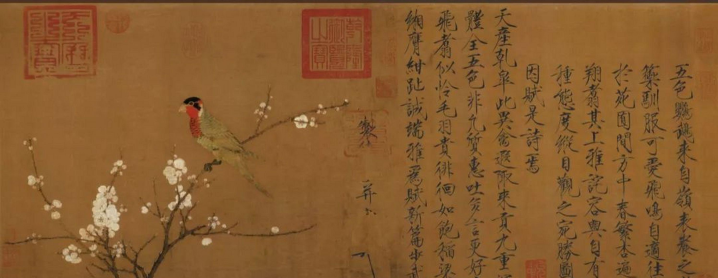 五色鸚鵡來自嶺表養之
禁籞馴服可愛飛鳴自適往
於苑囿間方中春繁杏遍
翔翥其上雅詫容與自有
種態度縱目觀之宛勝圖
因賦是詩焉
天產乾皋此異禽遐陬來貢九重
體全五色非凡質惠吐多言更好
飛翥似憐毛羽貴徘徊如飽稻粱
緗膺紺趾誠端雅為賦新篇步武
製